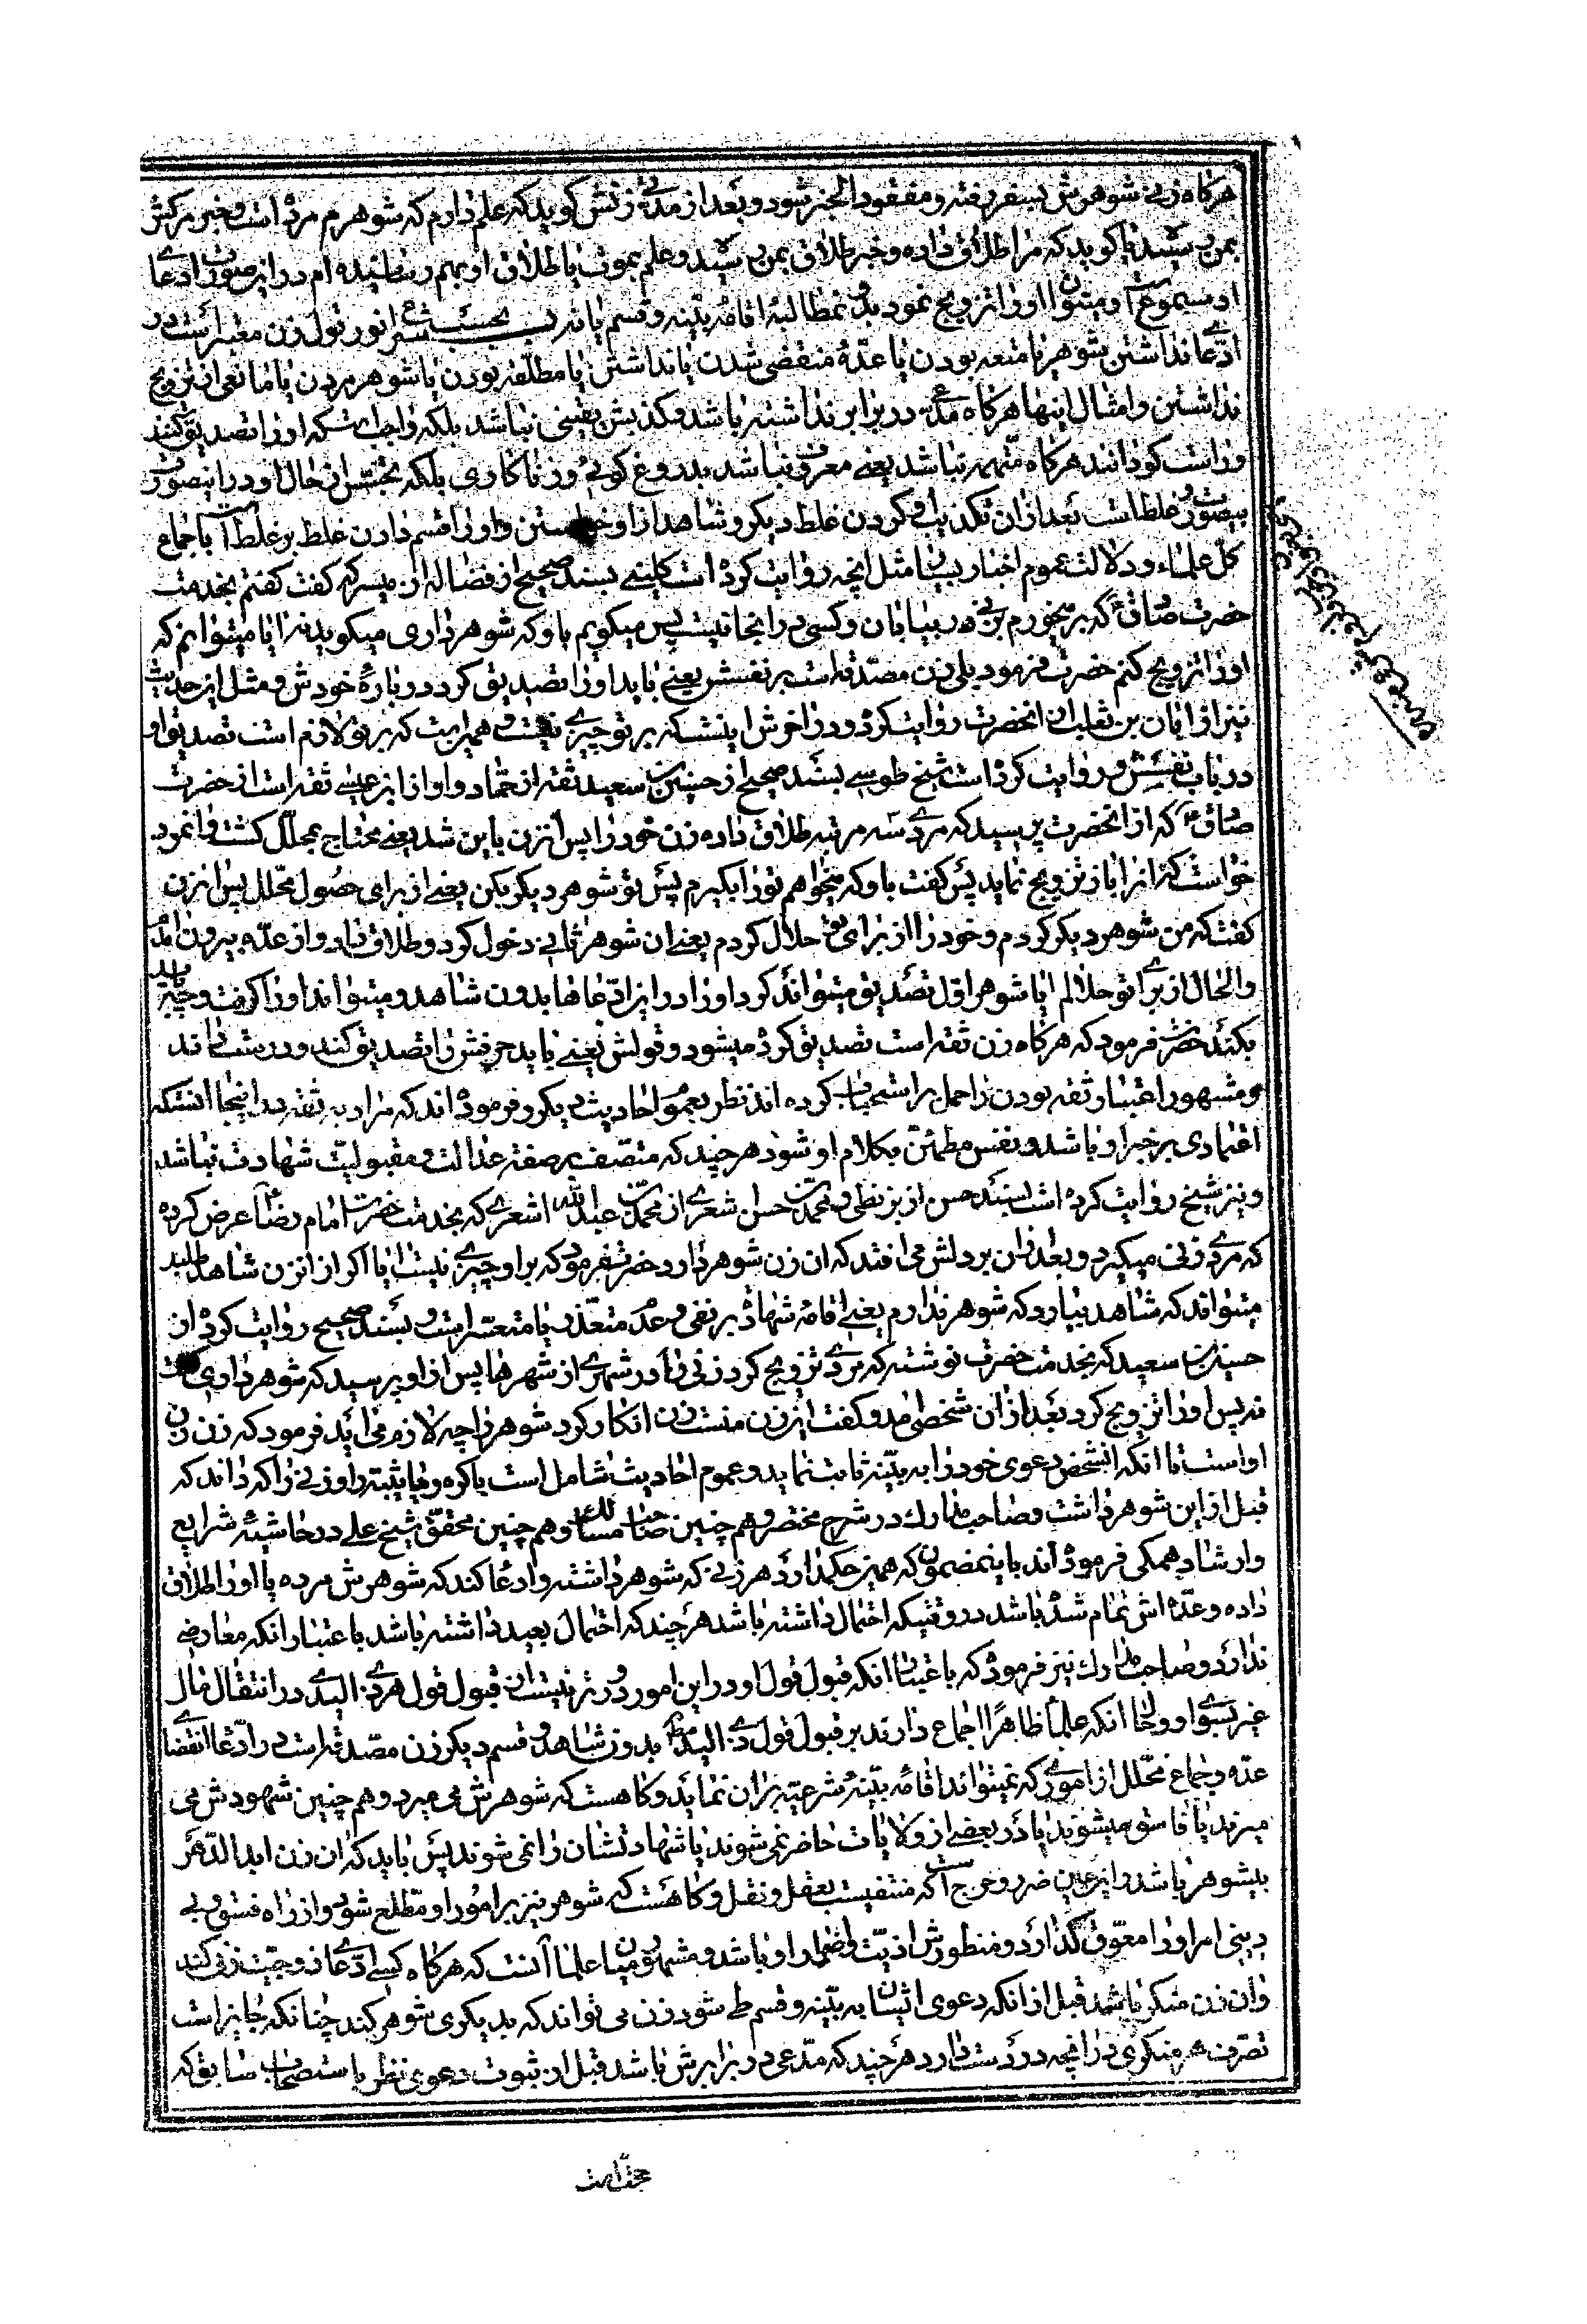 هرکاه زنی شوهرش بسفر رفته و مفقود الخبر شود و بعد از مدتی زنش کوید که علم دارم که شوهرم مرده است و خبر مرکش
بمن رسیده یا کوید که مرا طلاق داده و خبر طلاق بمن رسیده و علم بموت یا طلاق او بهم رسانیده ام در این صورت ادعای
او مسموع است و میتوان او را تزویج نمود بدون مطالبهٔ اقامهٔ بیّنه و قسم یا نه بحسب شرع انور قول زن معتبر است در
ادّعا نداشتن شوهر یا متعه بودن یا عدّهٔ منقضی شدن یا نداشتن یا مطلّقه بودن یا شوهر مردن یا مانعی از تزویج
نداشتن و امثال اینها هرکاه مدعی در برابر نداشته باشد و کذبش یقینی نباشد بلکه واجب است که او را تصدیق کنند
و راست کو دانند هرکاه متّهمه نباشد یعنی معروف نباشد بدروغ کوئی و زناکاری بلکه تجسّس از حال او در اینصورت
بیصورت و غلط است بعد از ان تکذیب او کردن غلط دیکر و شاهد از او خواستن و او را قسم دادن غلط بر غلط است باجماع
کل علماء و دلالت عموم اخبار بسیار مثل انچه روایت کرده است کلینی بسند صحیح از فضاله از میسر که کفت کفتم بخدمت
حضرت صادق ع که بر میخورم بزنی در بیابان و کسی در انجا نیست پس میکویم باو که شوهر داری میکوید نه ایا میتوانم که
او را تزویج کنم حضرت فرمود بلی زن مصدّقه است بر نفسش یعنی باید او را تصدیق کرد در بارهٔ خودش و مثل این حدیث
نیز از ابان بن تغلب از انحضرت روایت کرده و در اخرش اینست که بر تو چیزی نیست و همین است که بر تو لازم است تصدیق او
در باب نفسش و روایت کرده است شیخ طوسی بسند صحیح از حسین بن سعید ثقه از حمّاد و او از ابن عیسی ثقه است از حضرت
صادق ع که از انحضرت پرسید که مردی سه مرتبه طلاق داده زن خود را پس انزن باین شد یعنی محتاج بمحلّل کشت و انمرد
خواست که انرا باز تزویج نماید پس کفت باو که میخواهم تو را بکیرم پس تو شوهر دیکر بکن یعنی از برای حصول محلّل پس انزن
کفت که من شوهر دیکر کردم و خود را از برای تو حلال کردم یعنی ان شوهر ثانی دخول کرد و طلاق داد و از عدّه بیرون امدم
والحال از برای تو حلالم ایا شوهر اوّل تصدیق میتواند کرد او را در این ادّعاها بدون شاهد و میتواند او را کرفت و چه باید
بکند حضرت فرمود که هرکاه زن ثقه است تصدیق کرده میشود و قولش یعنی باید حرفش را تصدیق کند و درست داند
و مشهور اعتبار ثقه بودن را حمل بر استحباب کرده اند نظر بعموم احادیث دیکر و فرموده اند که مراد به ثقه در اینجا انستکه
اعتمادی بر خبر او باشد و نفس مطمئنّ بکلام او شود هر چند که متّصف بر صفت عدالت و مقبولیّت شهادت نباشد
و نیز شیخ روایت کرده است بسند حسن از بزنطی و محمّد بن حسن اشعری از محمّد بن عبدالله اشعری که بخدمت حضرت امام رضا ع عرض کرده
که مردی زنی میکیرد و بعد از ان بر دلش می افتد که ان زن شوهر دارد حضرت فرمود که بر او چیزی نیست ایا اکر از انزن شاهد طلبد
میتواند که شاهد بیاورد که شوهر ندارم یعنی اقامهٔ شهاده بر نفی و عدم متعذّر یا متعسّر است و بسند صحیح روایت کرده از
حسین بن سعید که بخدمت حضرت نوشته که مردی تزویج کرد زنی را در شهری از شهرها پس از او پرسید که شوهر داری کفت
نه پس او را تزویج کرد بعد از ان شخصی امد و کفت این زن منست زن انکار کرد شوهر را چه لازم می اید فرمود که زن زن
او است تا انکه انشخص دعوی خود را به بیّنه ثابت نماید و عموم احادیث شامل است باکره و ثیّبه را و زنی را که داند که
قبل از این شوهر داشت و صاحب مدارک در شرح مختصر و هم چنین صاحب مسالک و هم چنین محقّق شیخ علی در حاشیهٔ شرایع
و ارشاد همکی فرموده اند باینمضمون که همین حکم دارد هر زنی که شوهر داشته و ادعا کند که شوهرش مرده یا او را طلاق
داده و عدّه اش تمام شده باشد در وقتیکه احتمال داشته باشد هر چند که احتمال بعید داشته باشد باعتبار انکه معارضی
ندارد و صاحب مدارک نیز فرموده که باعتبار انکه قبول قول او در این امور دورتر نیست از قبول قول هر ذی الیدی در انتقال مال
غیر بسوی او و حال انکه علما ظاهرًا اجماع دارند بر قبول قول ذی الید بدون شاهد و قسم دیکر زن مصدّقه است در ادّعای انقضای
عدّه و جماع محلّل از اموری که نمیتواند اقامهٔ بیّنهٔ شرعیّه بر ان نماید و کاه هست که شوهرش می میرد و هم چنین شهودش می
میرند یا فاسق میشوند یا در بعضی از ولایات حاضر نمی شوند یا شهادتشان را نمی شنوند پس باید که ان زن ابد الدّهر
بیشوهر باشد و این عین ضرر و حرج است که منتفیست بعقل و نقل و کاه هست که شوهر نیز بر امور او مطّلع شود و از راه فسق و بی
دینی امر او را معوّق کذارد و منظورش اذیّت و اضرار او باشد و مشهور میان علما انست که هرکاه کسی ادّعای زوجیّت زنی کند
و ان زن منکر باشد قبل از انکه دعوی ایشان به بیّنه و قسم طی شود زن می تواند که بدیکری شوهر کند چنانکه جایز است
تصرّف هر منکری در انچه در دست دارد هر چند که مدّعی در برابرش باشد قبل از ثبوت دعوی نظر باستصحاب سابق که